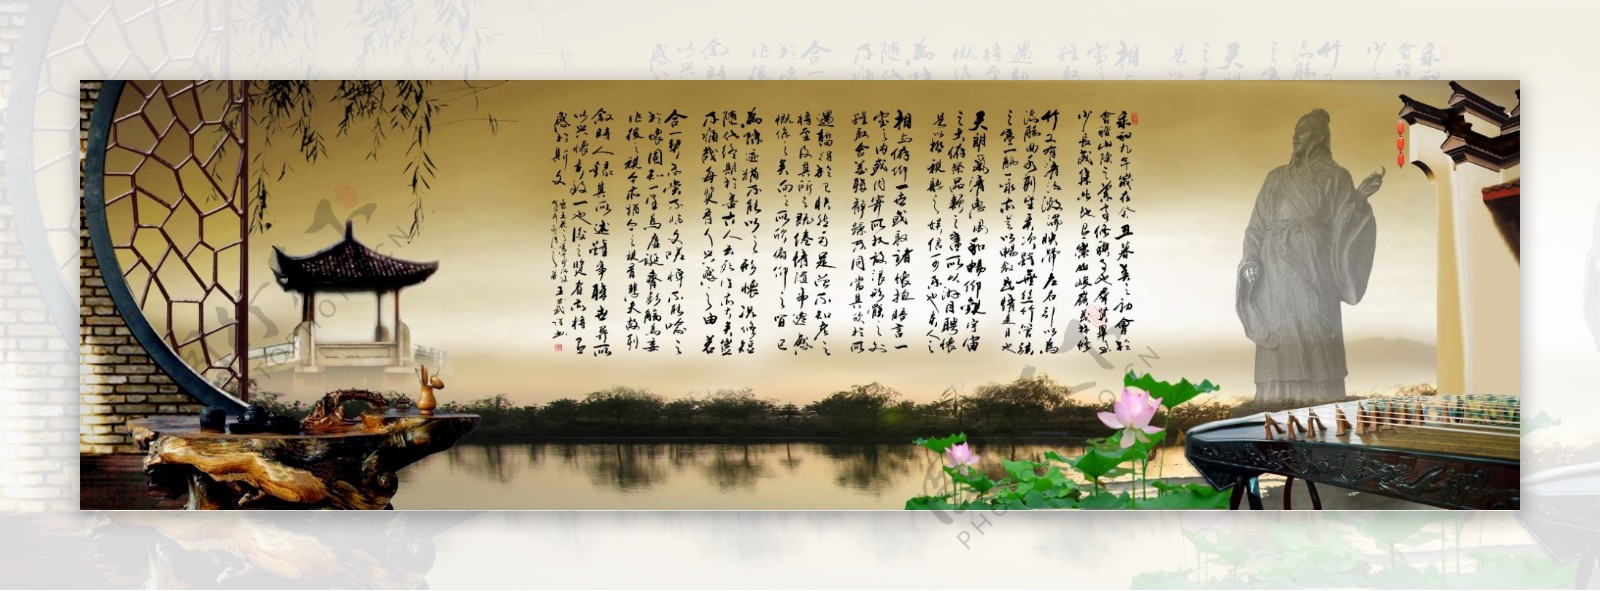 永和九年歲在癸丑暮春之初會於
會稽山陰之蘭亭修禊事也群賢畢至
少長咸集此地有崇山峻嶺茂林修
竹又有清流激湍映帶左右引以為
流觴曲水列坐其次雖無絲竹管弦
之盛一觴一詠亦足以暢敘幽情是日也
天朗氣清惠風和暢仰觀宇宙
之大俯察品類之盛所以遊目騁懷
足以極視聽之娛信可樂也夫人之
相與俯仰一世或取諸懷抱晤言一
室之內或因寄所託放浪形骸之外
雖取舍萬殊靜躁不同當其欣於所
遇暫得於己快然自足曾不知老之
將至及其所之既倦情隨事遷感
慨係之矣向之所欣俯仰之間已
為陳迹猶不能以之興懷況修短
隨化終期於盡古人云死生亦大矣豈
不痛哉每覽昔人興感之由若
合一契未嘗不臨文嗟悼不能喻之
於懷固知一死生為虛誕齊彭殤為妄
作後之視今亦猶今之視昔悲夫故列
敘時人錄其所述雖世殊事異所
以興懷其致一也後之覽者亦將有
感於斯文